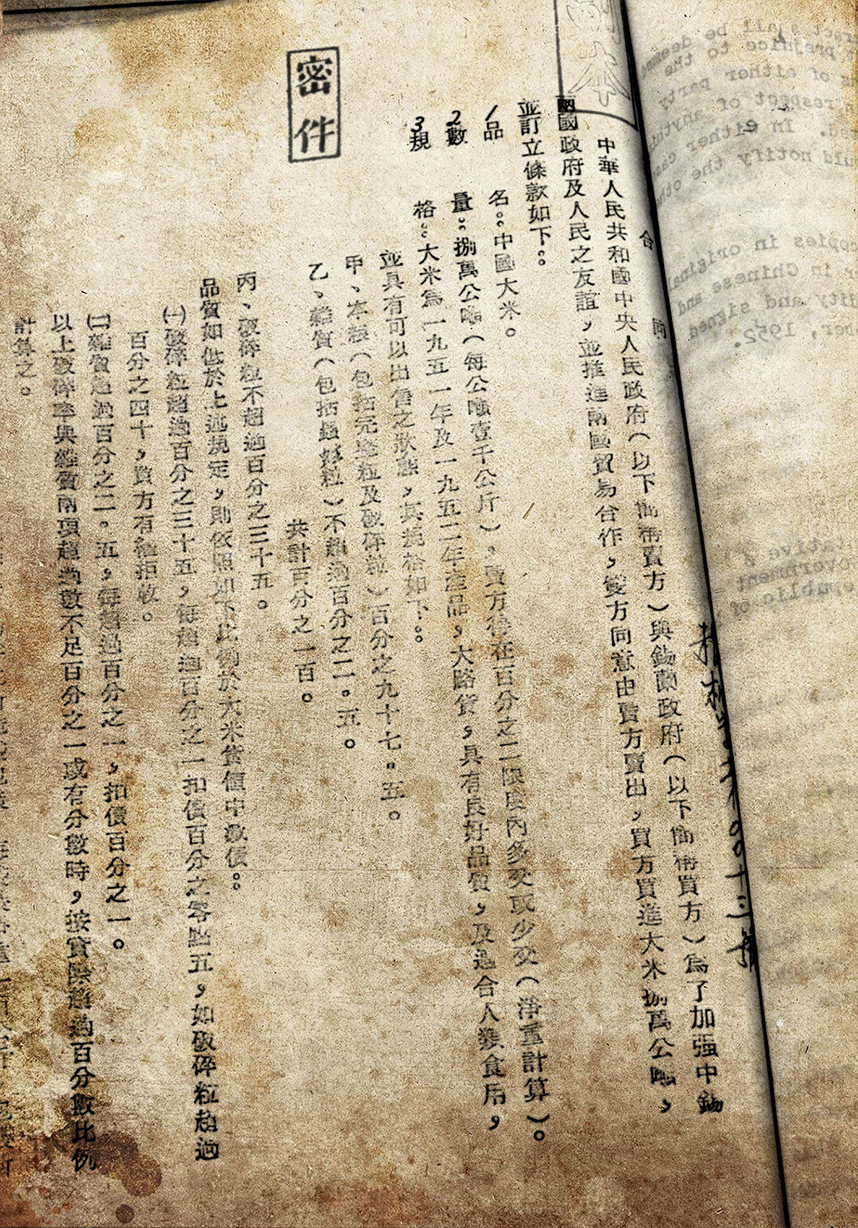 shall be deemed
prejudice to the
of either party
respect of
In either case
notify the
copies in original
in Chinese and
and signed
1952.
Government
Republic of
合同
中華人民共和國中央人民政府（以下簡稱賣方）與錫蘭政府（以下簡稱買方）爲了加强中錫
兩國政府及人民之友誼，並推進兩國貿易合作，雙方同意由賣方賣出，買方買進大米捌萬公噸，
並訂立條款如下：
1品名：中國大米。
2數量：捌萬公噸（每公噸壹千公斤），賣方得在百分之二限度內多交或少交（淨重計算）。
3規格：大米爲一九五一年及一九五二年產品，大路貨，具有良好品質，及適合人類食用，
並具有可以出售之狀態，其規格如下：
甲、本（包括完整粒及破碎粒）百分之九十七。五。
乙、雜質（包括粒）不超過百分之二。五。
共計百分之一百。
密件
丙、破碎粒不超過百分之三十五。
品質如低於上述規定，則依照如下比例於大米貨值中減價：
㈠破碎粒超過百分之三十五，每超過百分之一扣價百分之零點五，如破碎粒超過
百分之四十，買方有權拒收。
㈡雜質超過百分之二。五，每超過百分之一，扣價百分之一。
以上破碎率與雜質兩項超過數不足百分之一或有分數時，按實際超過百分數比例
計算之。